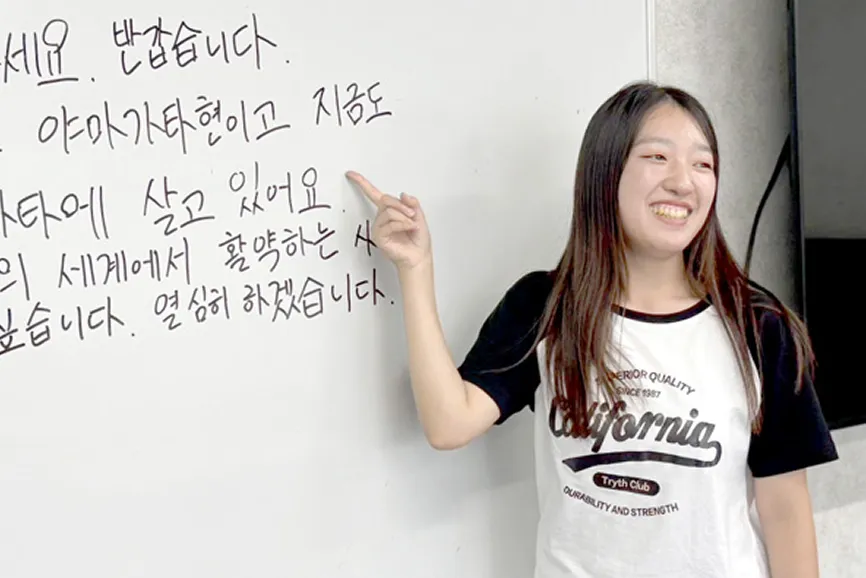 세요. 반갑습니다.
야마가타현이고 지금도
타에 살고 있어요.
의 세계에서 활약하는 사
싶습니다. 열심히 하겠습니다.
SUPERIOR QUALITY
SINCE 1987
California
Tryth Club
DURABILITY AND STRENGTH